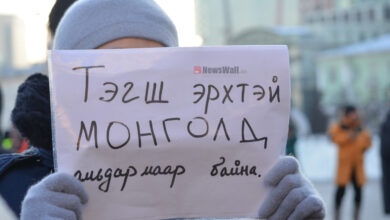 NewsWall.mn
Тэгш эрхтэй
МОНГОЛД
амьдармаар байна.